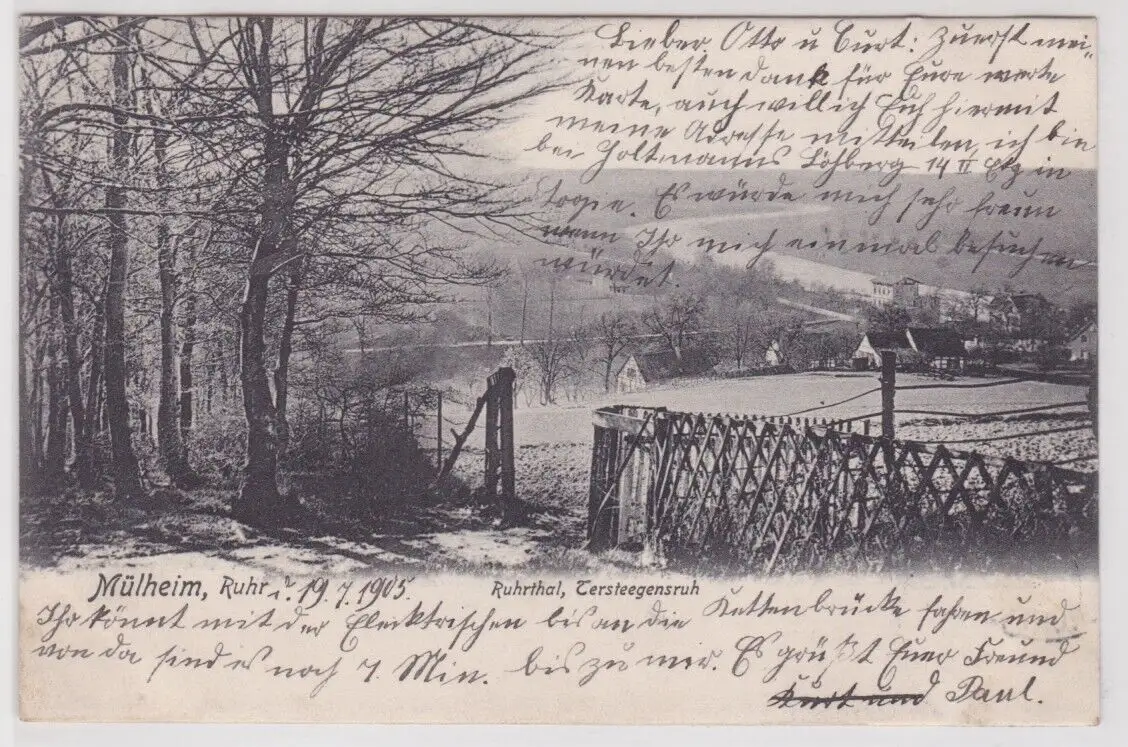 Lieber Otto u Curt: Zuerst mei-
nen besten Dank für Eure werte
Karte, auch will ich Euch hiermit
meine Adresse mitteilen, ich bin
bei Holtmanns Löhberg 14 II Etg in
Logie. Es würde mich sehr freun
wenn Ihr mich einmal besuchen
würdet.
Mülheim, Ruhr d. 19.7.1905.
Ruhrthal, Tersteegensruh
Ihr könnt mit der Elecktrischen bis an die Kettenbrücke fahren und
von da sind es noch 7 Min. bis zu mir. Es grüßt Euer Freund
Kurt und Paul.